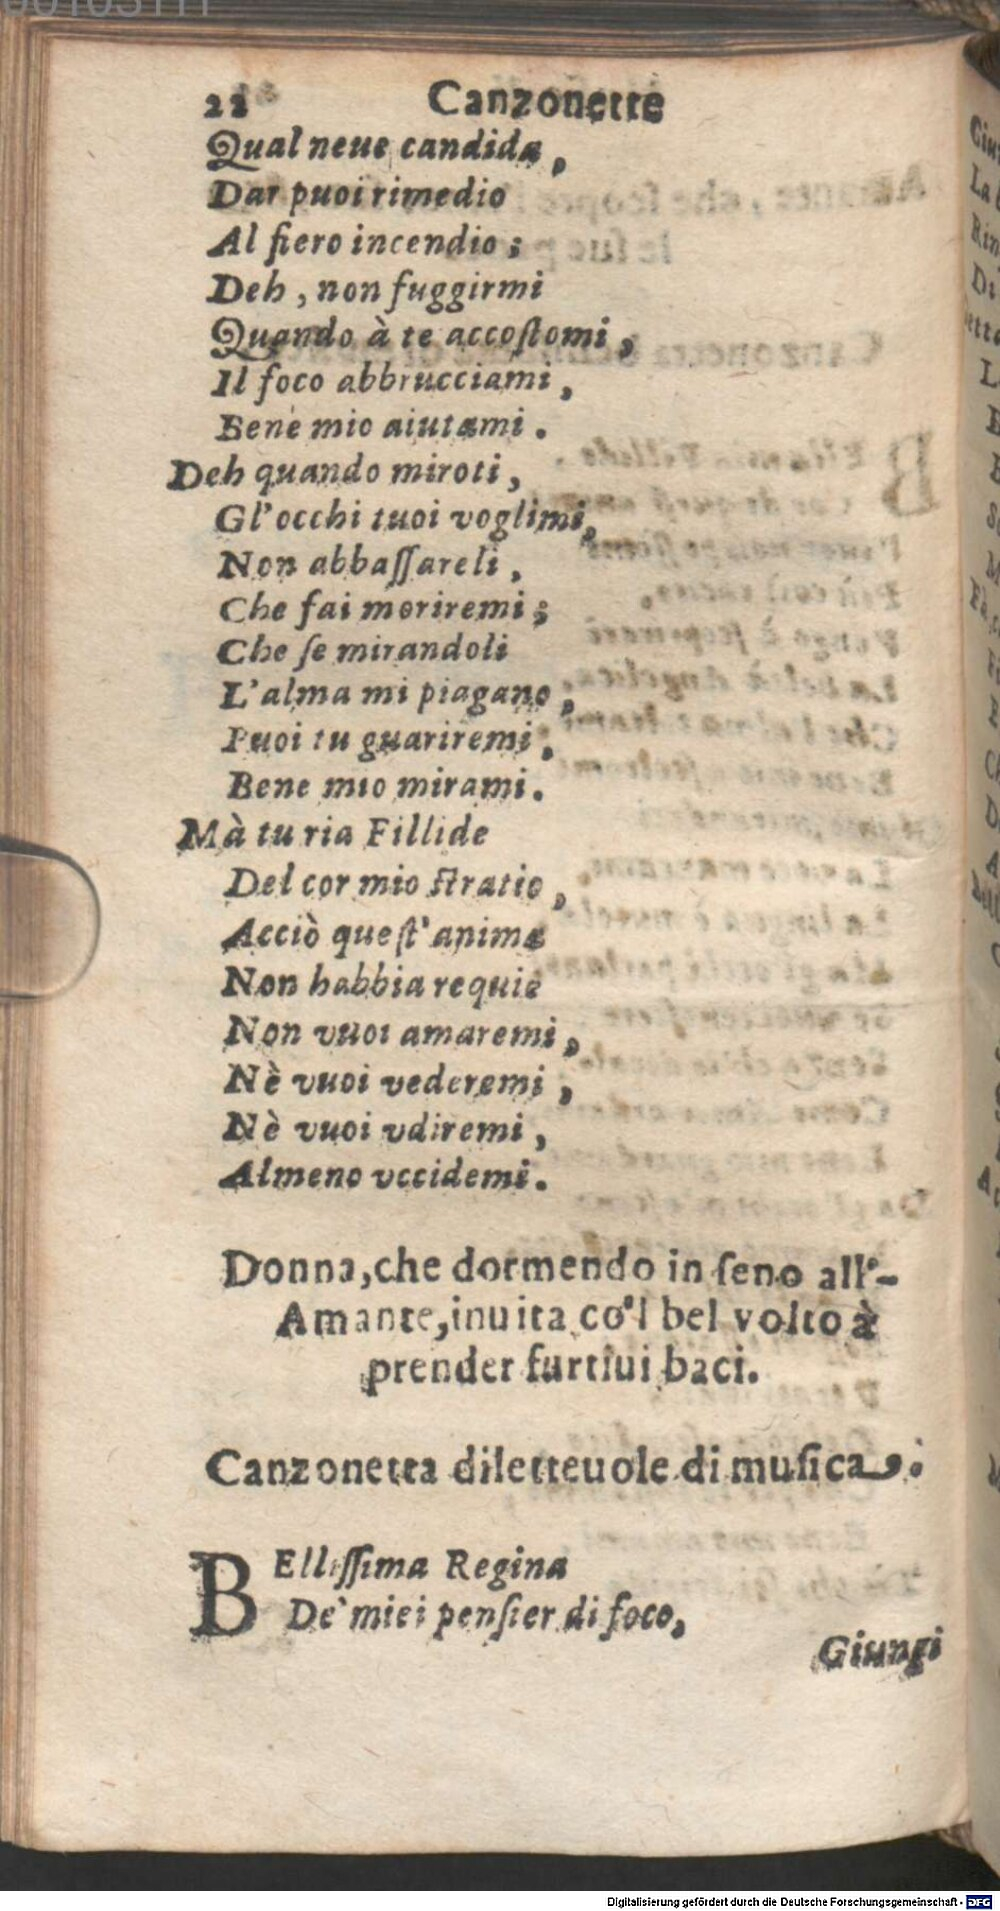 22 Canzonette
Qual neue candida,
Dar puoi rimedio
Al fiero incendio;
Deh, non fuggirmi
Quando à te accoſtomi,
Il foco abbrucciami,
Bene mio aiutami.
Deh quando miroti,
Gl'occhi tuoi voglimi,
Non abbaſſareli,
Che fai moriremi;
Che ſe mirandoli
L'alma mi piagano,
Puoi tu guariremi,
Bene mio mirami.
Mà tu ria Fillide
Del cor mio ſtratio,
Acciò queſt'anima
Non habbia requie
Non vuoi amaremi,
Nè vuoi vederemi,
Nè vuoi vdiremi,
Almeno vccidemi.
Donna, che dormendo in ſeno all'-
Amante, inuita co'l bel volto à
prender furtiui baci.
Canzonetta diletteuole di muſica.
BElliſſima Regina
De' miei penſier di foco,
Giungi
Digitalisierung gefördert durch die Deutsche Forschungsgemeinschaft - DFG